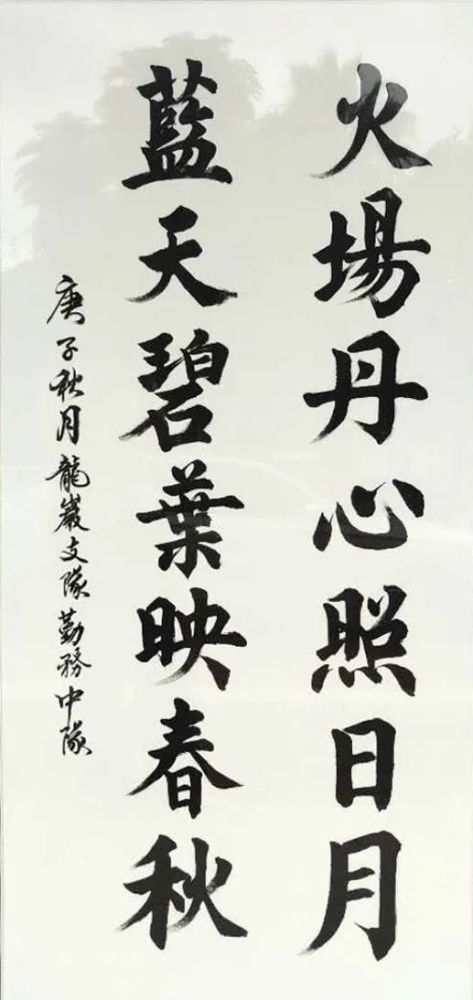 火場丹心照日月
藍天碧葉映春秋
庚子秋月龍巖支隊勤務中隊